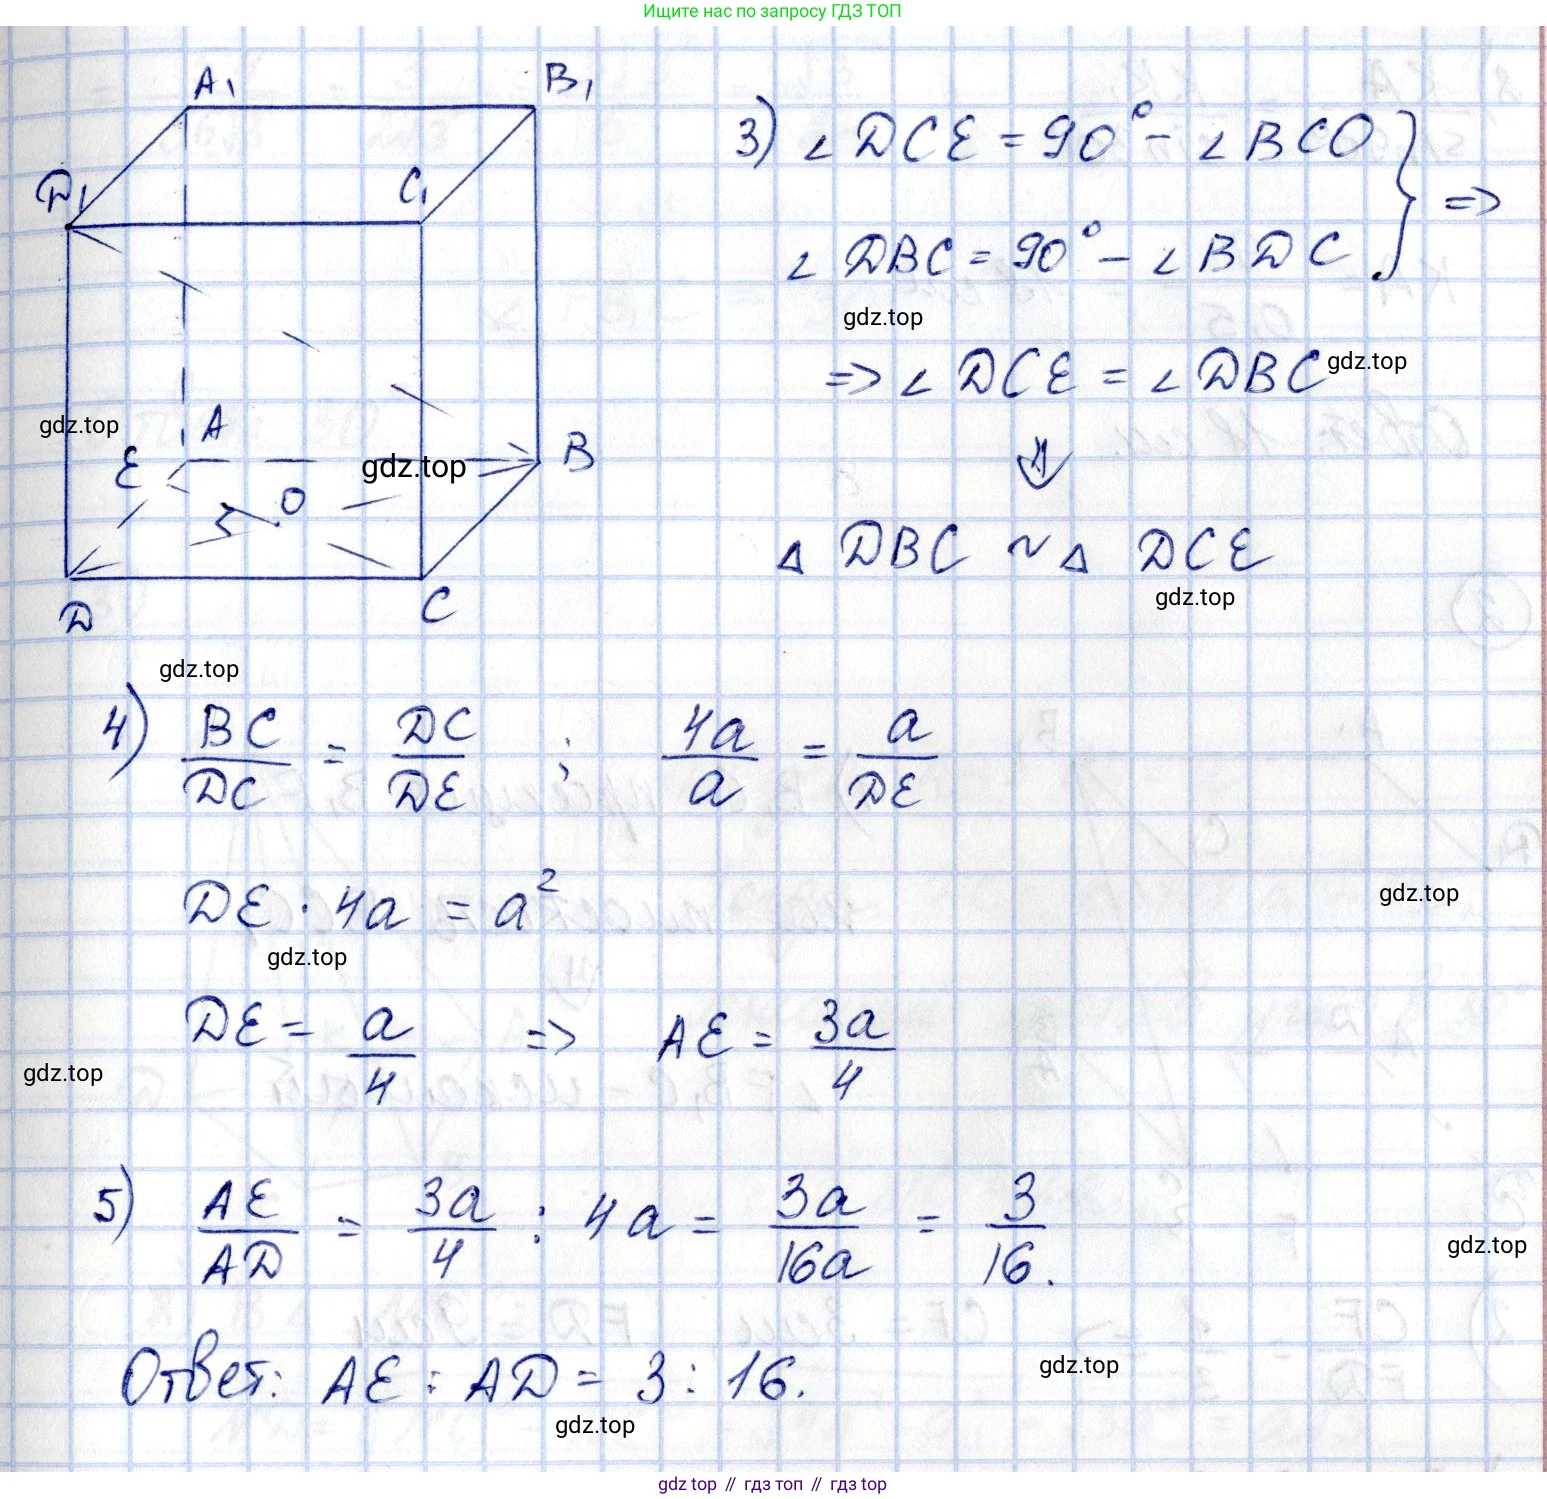 Ищите нас по запросу ГДЗ ТОП
A₁
B₁
D₁
C₁
A
B
E
O
D
C
3) ∠DCE = 90° - ∠BCO
∠DBC = 90° - ∠BDC
} =>
gdz.top
=> ∠DCE = ∠DBC
gdz.top
gdz.top
gdz.top
⇓
△ DBC ~ △ DCE
gdz.top
gdz.top
4) BC/DC = DC/DE ; 4a/a = a/DE
gdz.top
DE · 4a = a²
gdz.top
DE = a/4 => AE = 3a/4
gdz.top
5) AE/AD = 3a/4 : 4a = 3a/16a = 3/16.
gdz.top
Ответ: AE : AD = 3 : 16.
gdz.top
gdz.top
gdz top // гдз топ // гдз top